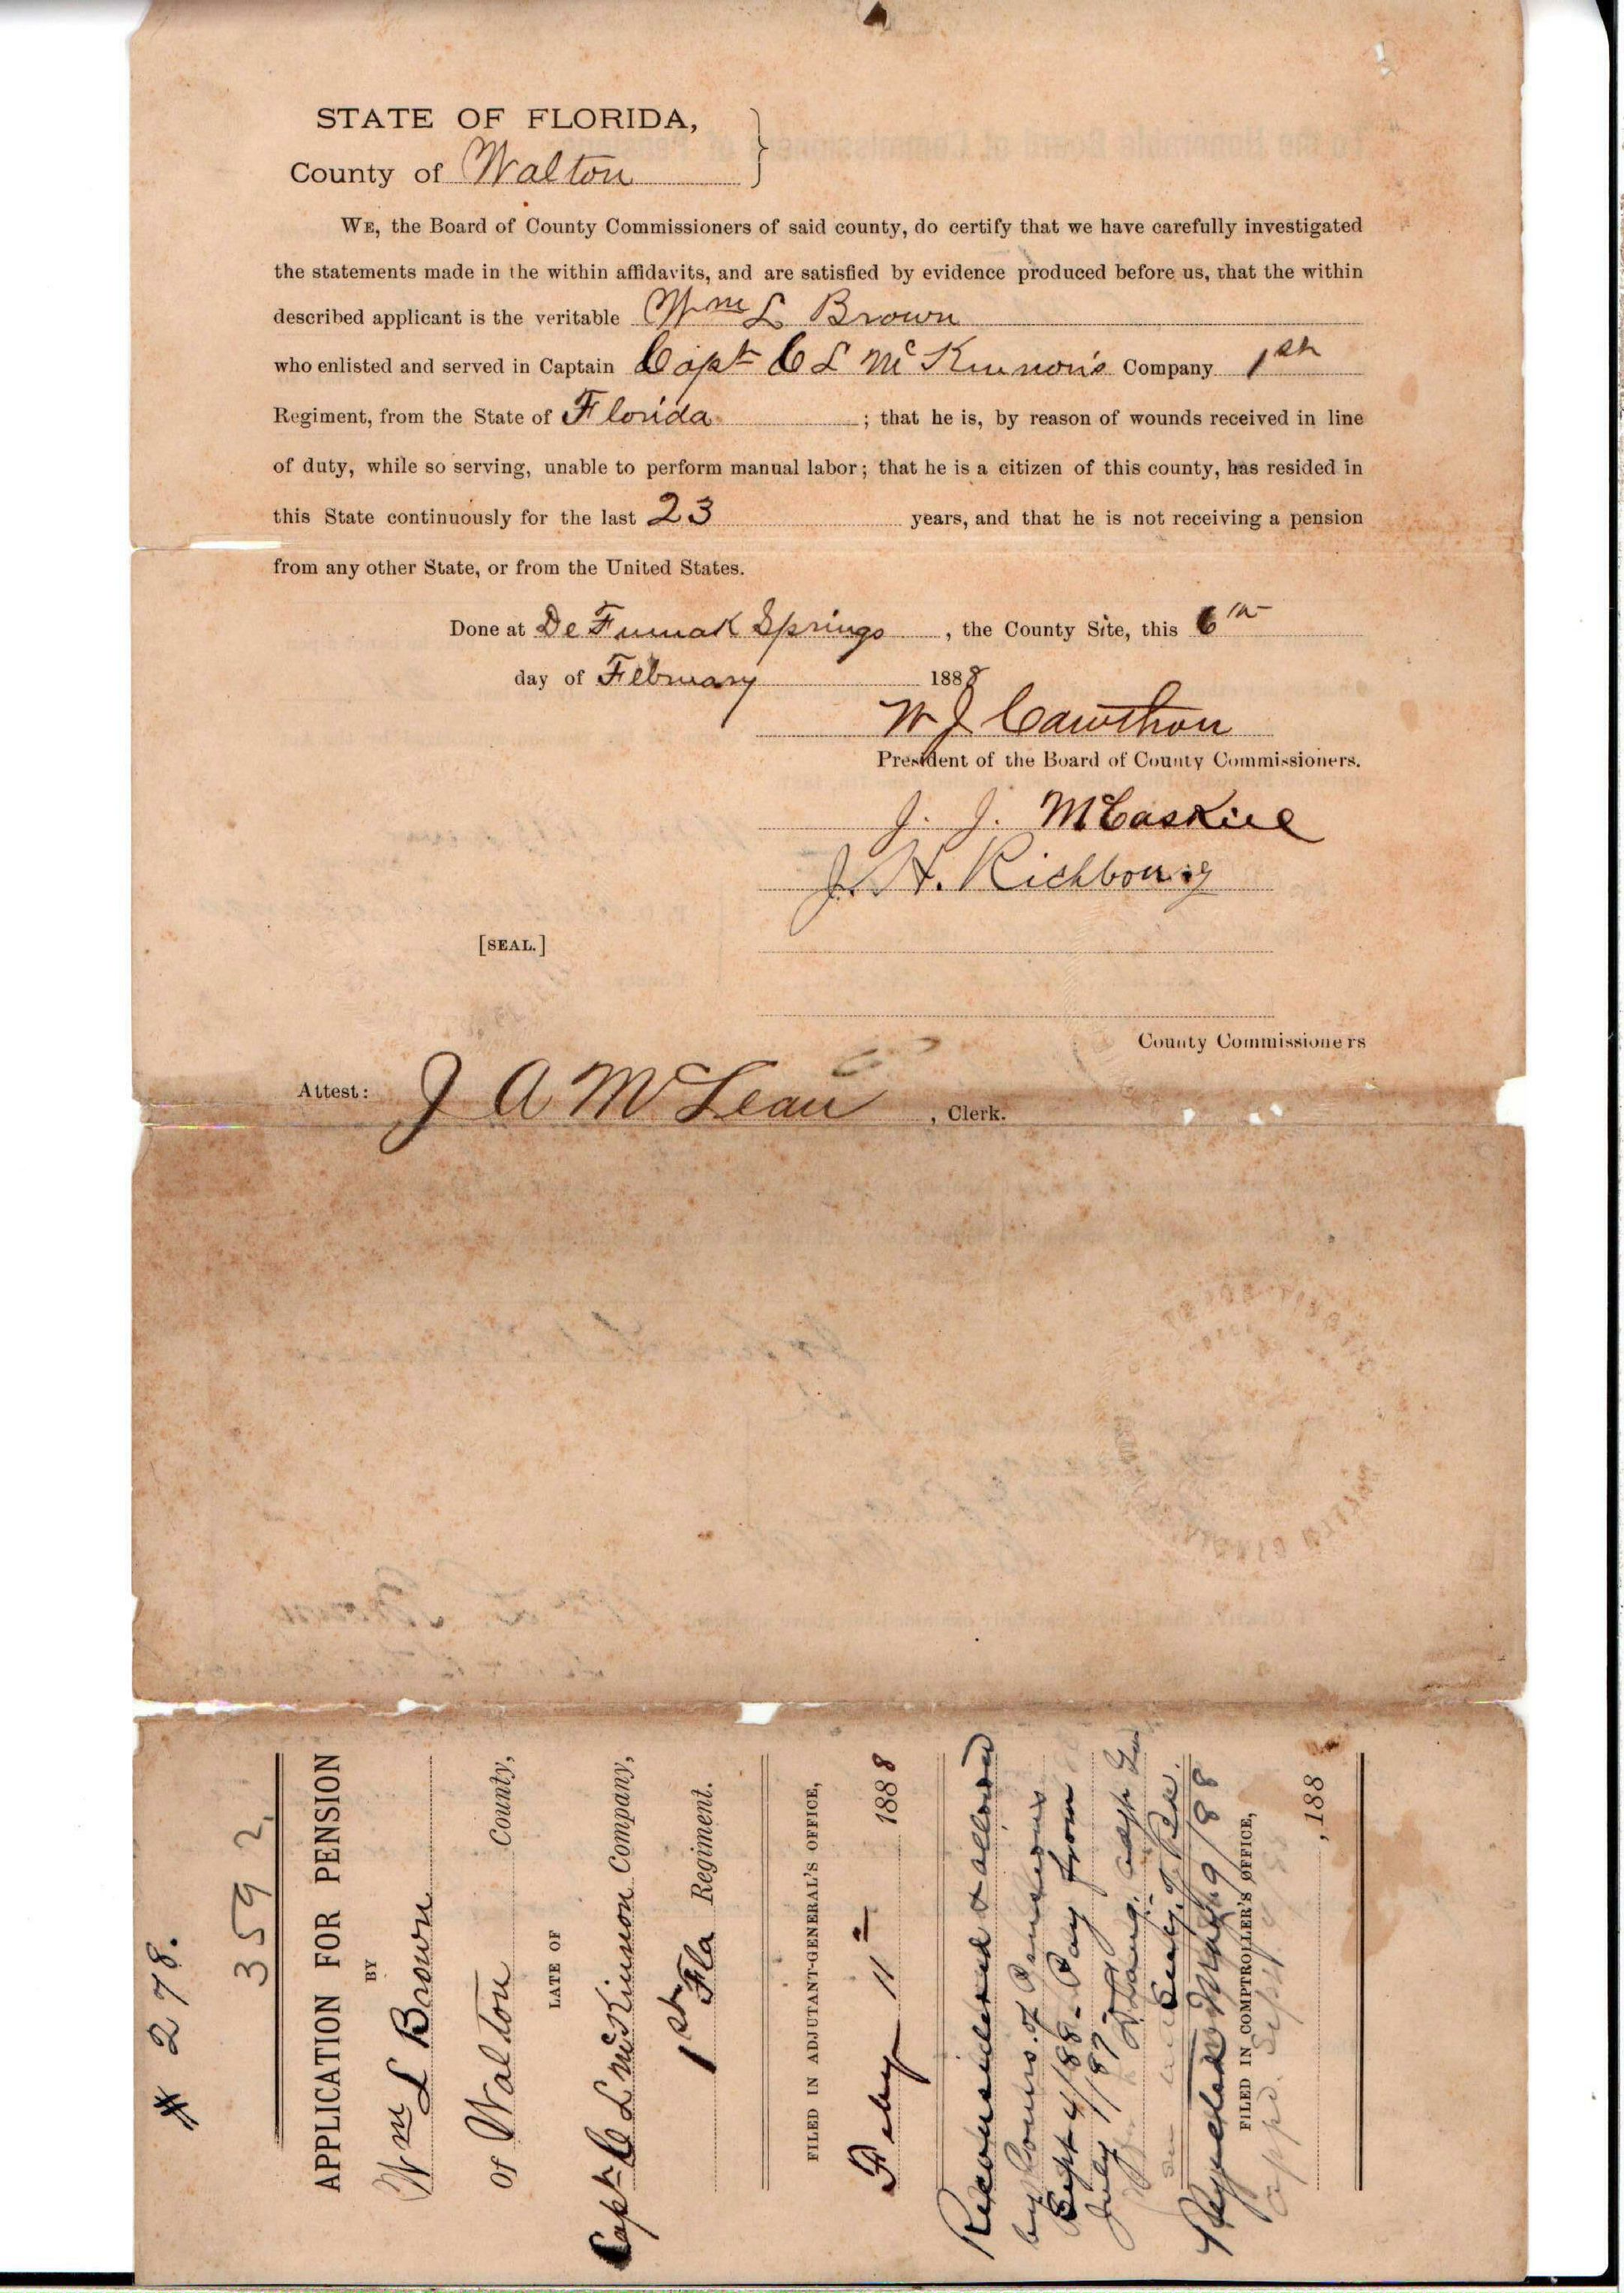 STATE OF FLORIDA,
County of Walton
WE, the Board of County Commissioners of said county, do certify that we have carefully investigated
the statements made in the within affidavits, and are satisfied by evidence produced before us, that the within
described applicant is the veritable Wm L Brown
who enlisted and served in Captain Capt C L McKinnon's Company 1st
Regiment, from the State of Florida ; that he is, by reason of wounds received in line
of duty, while so serving, unable to perform manual labor; that he is a citizen of this county, has resided in
this State continuously for the last 23 years, and that he is not receiving a pension
from any other State, or from the United States.
Done at De Funiak Springs , the County Site, this 6th
day of February 1888
W J Cawthon
President of the Board of County Commissioners.
J. J. McCaskill
J. H. Richbourg
[SEAL.]
County Commissioners
Attest: J A McLean , Clerk.
# 278.
3592
APPLICATION FOR PENSION
BY
Wm L Brown
Of Walton County,
LATE OF
Capt C L McKinnon Company,
1st Fla Regiment.
FILED IN ADJUTANT-GENERAL'S OFFICE,
Feby 11th 1888
Reconsidered & allowed
by Comrs. of Pensions
Sept 4/88. Pay from
July 1/87
D. Lang. Adjt Gen
Secty. of Bd.
Rejected May 9/88
FILED IN COMPTROLLER'S OFFICE,
appd. Sept 4
, 188